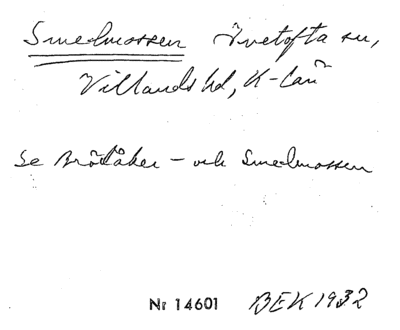 Smelmossen Ivetofta sn,
Villands hd, K-län
Se Brödåker - och Smelmossen
Nr 14601 BEK 1932